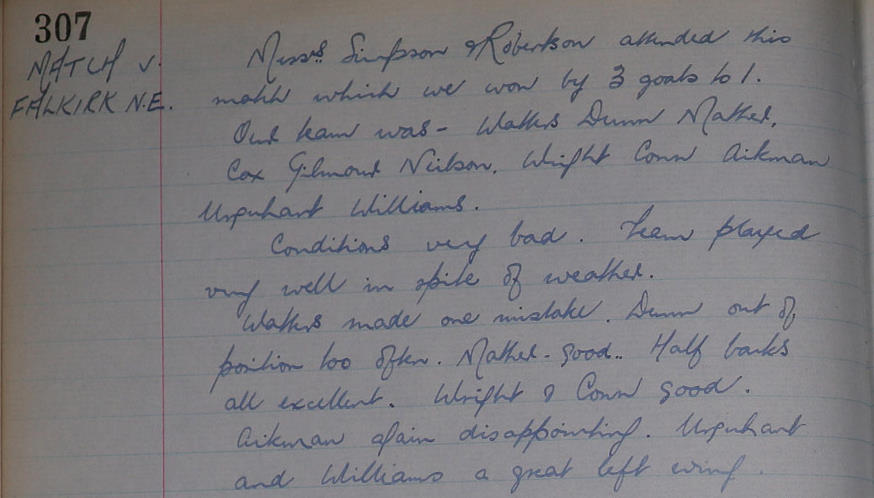 307
MATCH V.
FALKIRK N.E.
Messrs Simpson & Robertson attended this
match which we won by 3 goals to 1.
Our team was - Watters Dunn Mather,
Cox Gilmour Neilson, Wright Conn Aikman
Urquhart Williams.
Conditions very bad. Team played
very well in spite of weather.
Watters made one mistake. Dunn out of
position too often. Mather - good.. Half backs
all excellent. Wright & Conn good.
Aikman again disappointing. Urquhart
and Williams a great left wing.